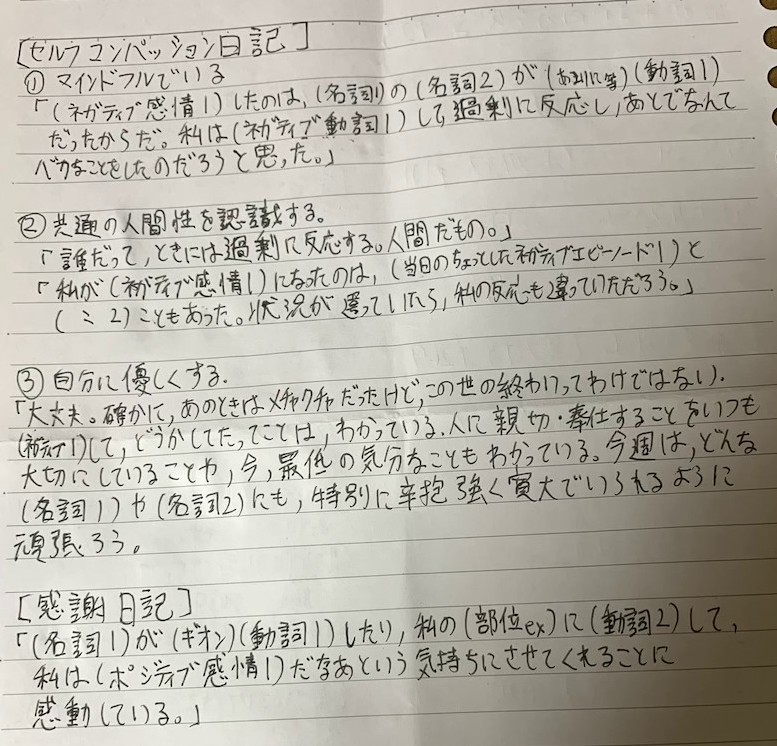 [セルフコンパッション日記]
① マインドフルでいる
「(ネガティブ感情1)したのは,(名詞1)の(名詞2)が(あまりに等)(動詞1)
だったからだ。私は(ネガティブ動詞1)して,過剰に反応し,あとでなんて
バカなことをしたのだろうと思った。」
② 共通の人間性を認識する。
「誰だって,ときには過剰に反応する。人間だもの。」
「私が(ネガティブ感情1)になったのは,(当日のちょっとしたネガティブエピソード1)と
(〃2)こともあった。状況が違っていたら,私の反応も違っていただろう。」
③ 自分に優しくする.
「大丈夫。確かに,あのときはメチャクチャだったけど,この世の終わりってわけではない.
(ネガティブ1)して,どうかしてたってことは,わかっている.人に親切・奉仕することをいつも
大切にしていることや,今,最低の気分なこともわかっている。今週は,どんな
(名詞1)や(名詞2)にも,特別に辛抱強く寛大でいられるように
頑張ろう。
[感謝日記]
「(名詞1)が(ギオン)(動詞1)したり,私の(部位ex)に(動詞2)して,
私は(ポジティブ感情1)だなあという気持ちにさせてくれることに
感動している。」